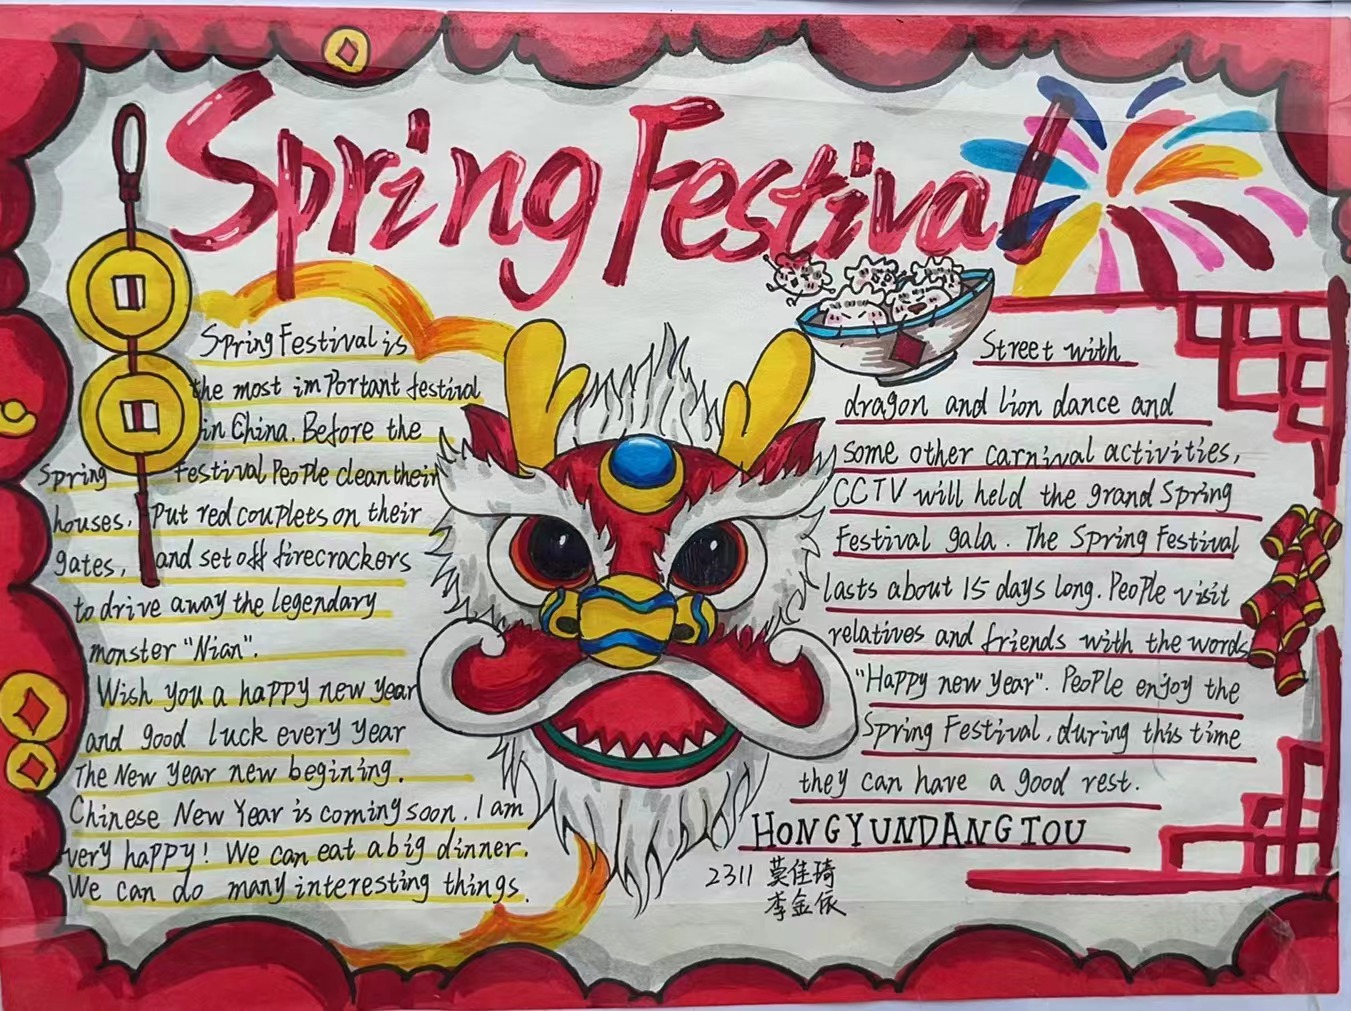 Spring Festival
Spring Festival is
the most imPortant festival
in China. Before the
Spring Festival PeoPle clean their
houses, Put red couplets on their
gates, and set off firecrackers
to drive away the legendary
monster "Nian".
Wish you a haPPy new year
and good luck every year
The New Year new begining.
Chinese New Year is coming soon. I am
very haPPy! We can eat a big dinner.
We can do many interesting things.
Street with
dragon and lion dance and
some other carnival activities,
CCTV will held the grand Spring
Festival gala. The Spring Festival
lasts about 15 days long. PeoPle visit
relatives and friends with the words
"Happy new year". PeoPle enjoy the
Spring Festival, during this time
they can have a good rest.
HONGYUNDANGTOU
2311 莫佳琦
李金依